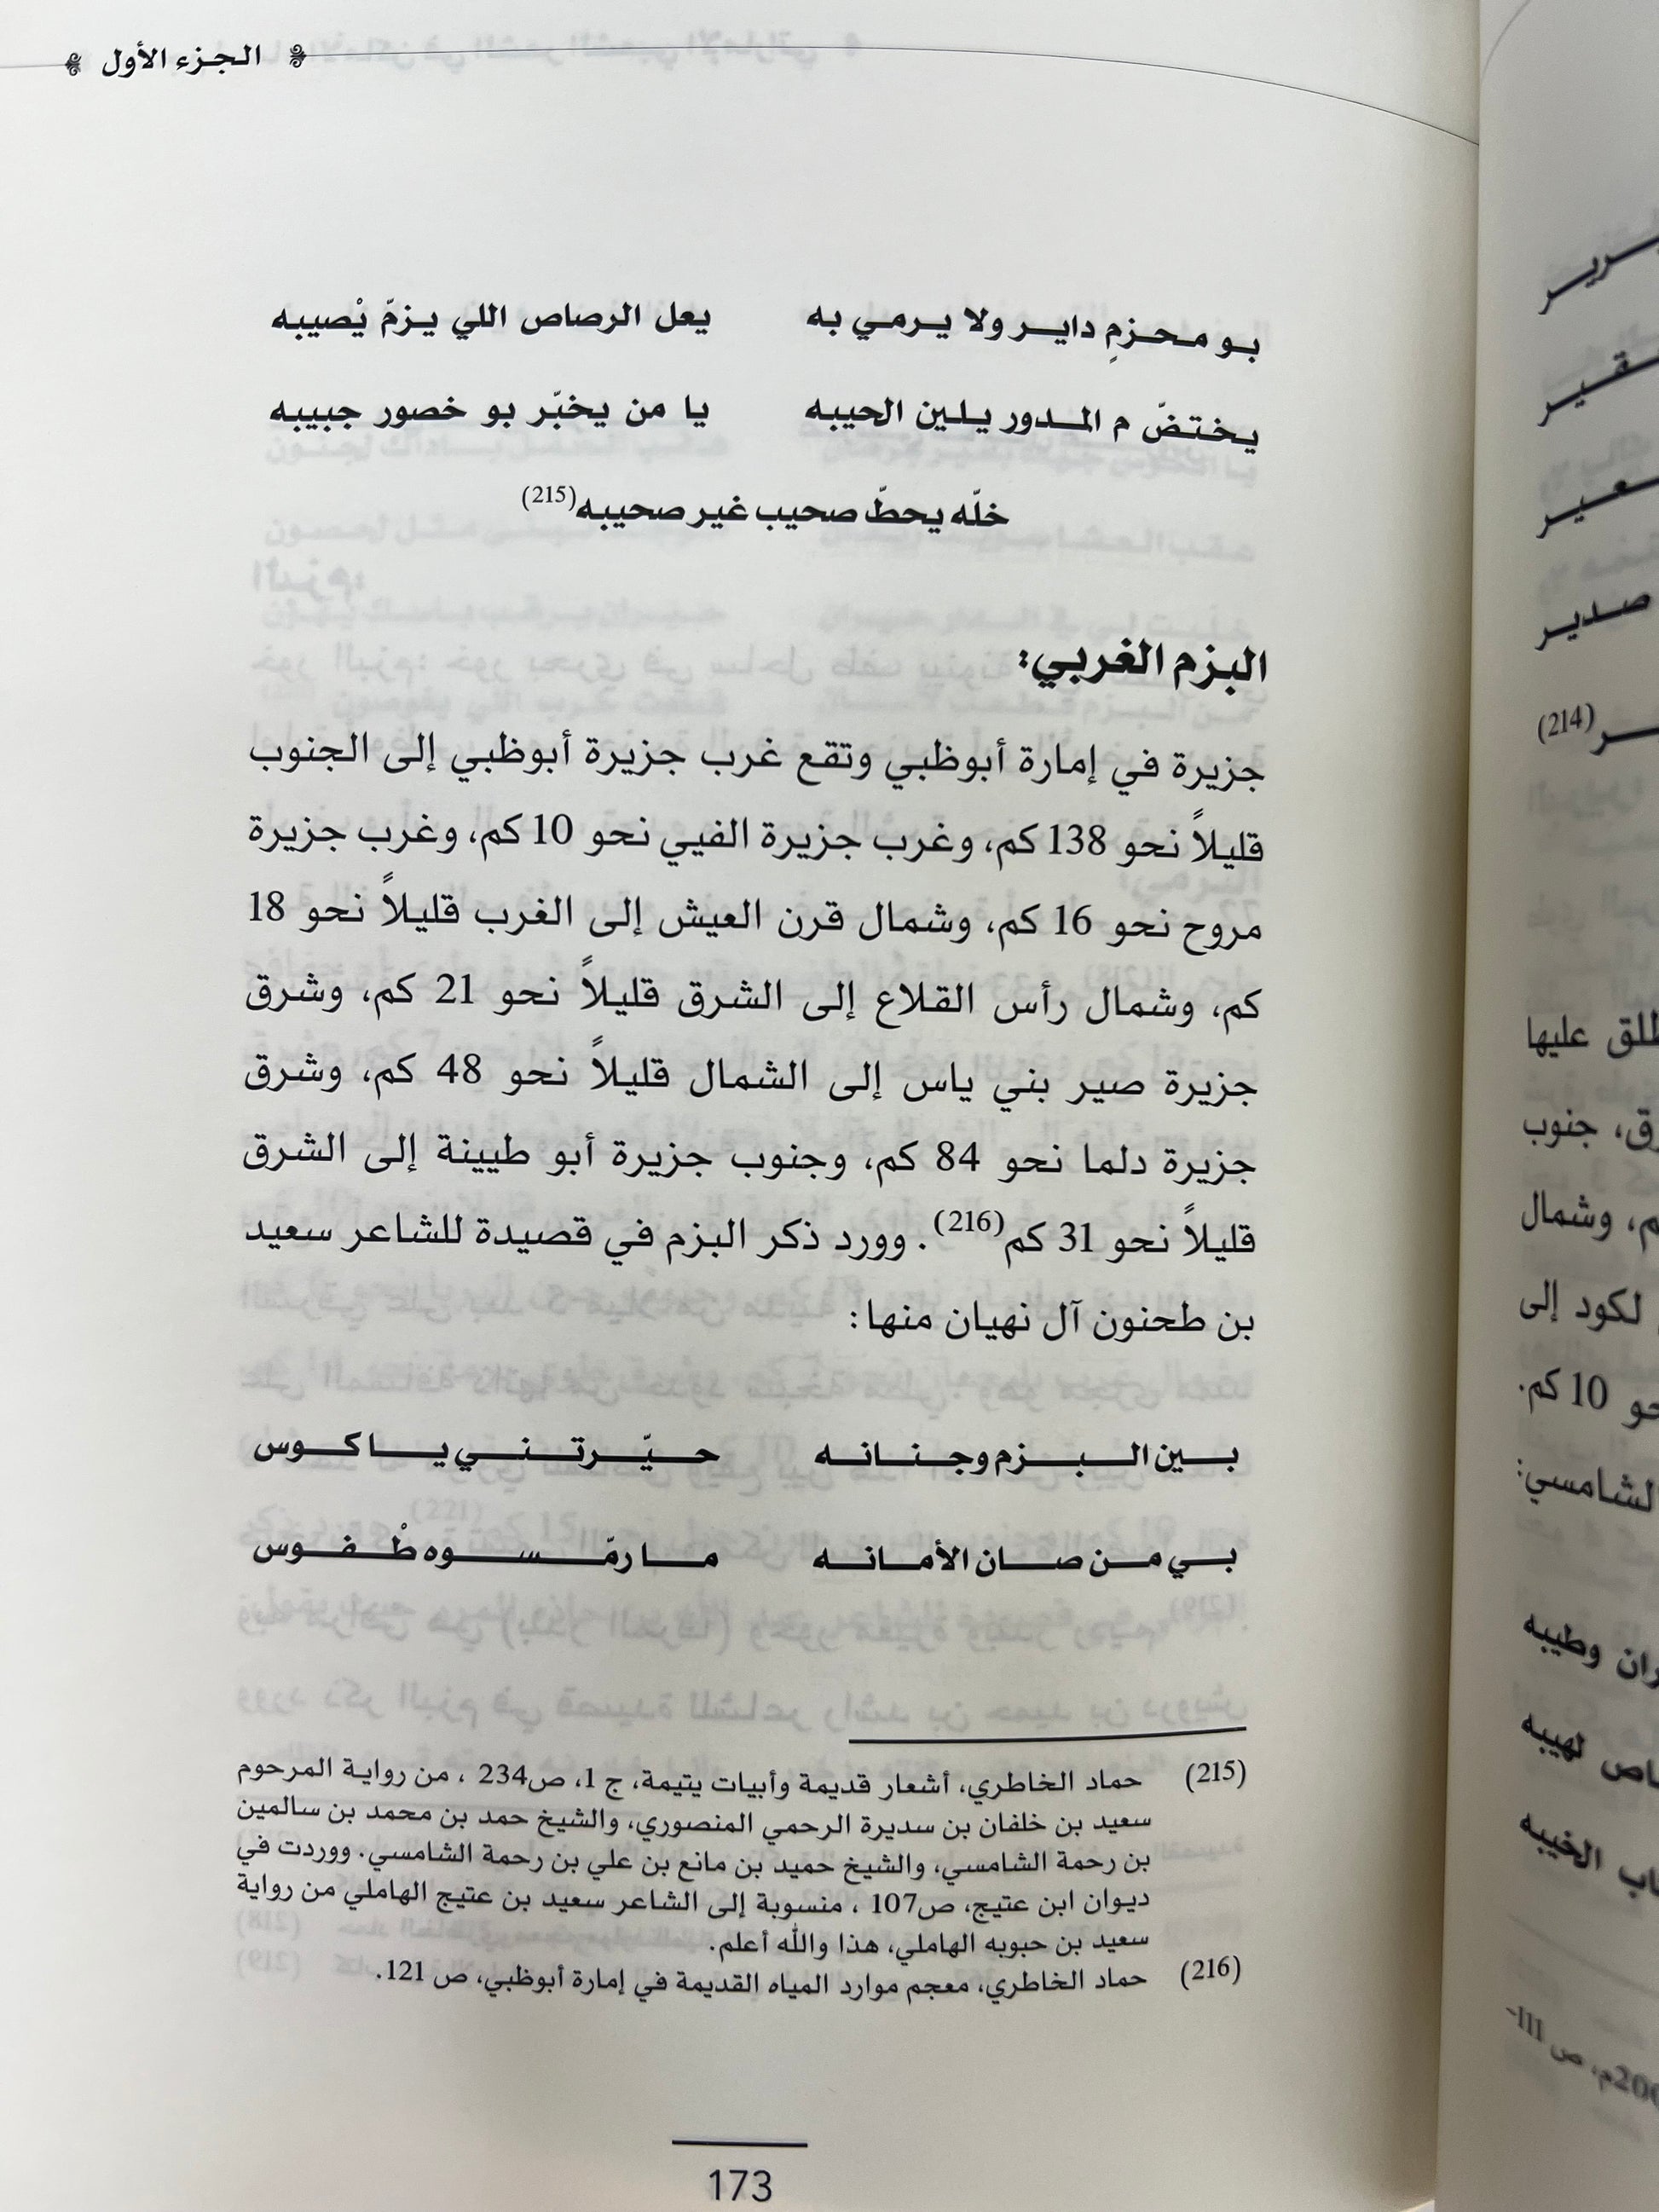 الجزء الأول
بو محزمِ داير ولا يرمي به يعل الرصاص اللي يزمّ يْصيبه
يختضّ م المدور يلين الحيبه يا من يخبّر بو خصور جبيبه
خلّه يحطّ صحيب غير صحيبه(215)
البزم الغربي:
جزيرة في إمارة أبوظبي وتقع غرب جزيرة أبوظبي إلى الجنوب
قليلاً نحو 138 كم، وغرب جزيرة الفيي نحو 10 كم، وغرب جزيرة
مروح نحو 16 كم، وشمال قرن العيش إلى الغرب قليلاً نحو 18
كم، وشمال رأس القلاع إلى الشرق قليلاً نحو 21 كم، وشرق
جزيرة صير بني ياس إلى الشمال قليلاً نحو 48 كم، وشرق
جزيرة دلما نحو 84 كم، وجنوب جزيرة أبو طيينة إلى الشرق
قليلاً نحو 31 كم(216). وورد ذكر البزم في قصيدة للشاعر سعيد
بن طحنون آل نهيان منها:
بين البزم وجنانه حيّرتني يا كوس
بي من صان الأمانه ما رمّسوه طْفوس
(215) حماد الخاطري، أشعار قديمة وأبيات يتيمة، ج 1، ص234 ، من رواية المرحوم
سعيد بن خلفان بن سديرة الرحمي المنصوري، والشيخ حمد بن محمد بن سالمين
بن رحمة الشامسي، والشيخ حميد بن مانع بن علي بن رحمة الشامسي. ووردت في
ديوان ابن عتيج، ص107 ، منسوبة إلى الشاعر سعيد بن عتيج الهاملي من رواية
سعيد بن حبوبه الهاملي، هذا والله أعلم.
(216) حماد الخاطري، معجم موارد المياه القديمة في إمارة أبوظبي، ص 121.
173
صدير
(214)
طلق عليها
جنوب
وشمال
لكود إلى
10 كم.
لشامسي:
وطيبه
لهيبه
الخيبه